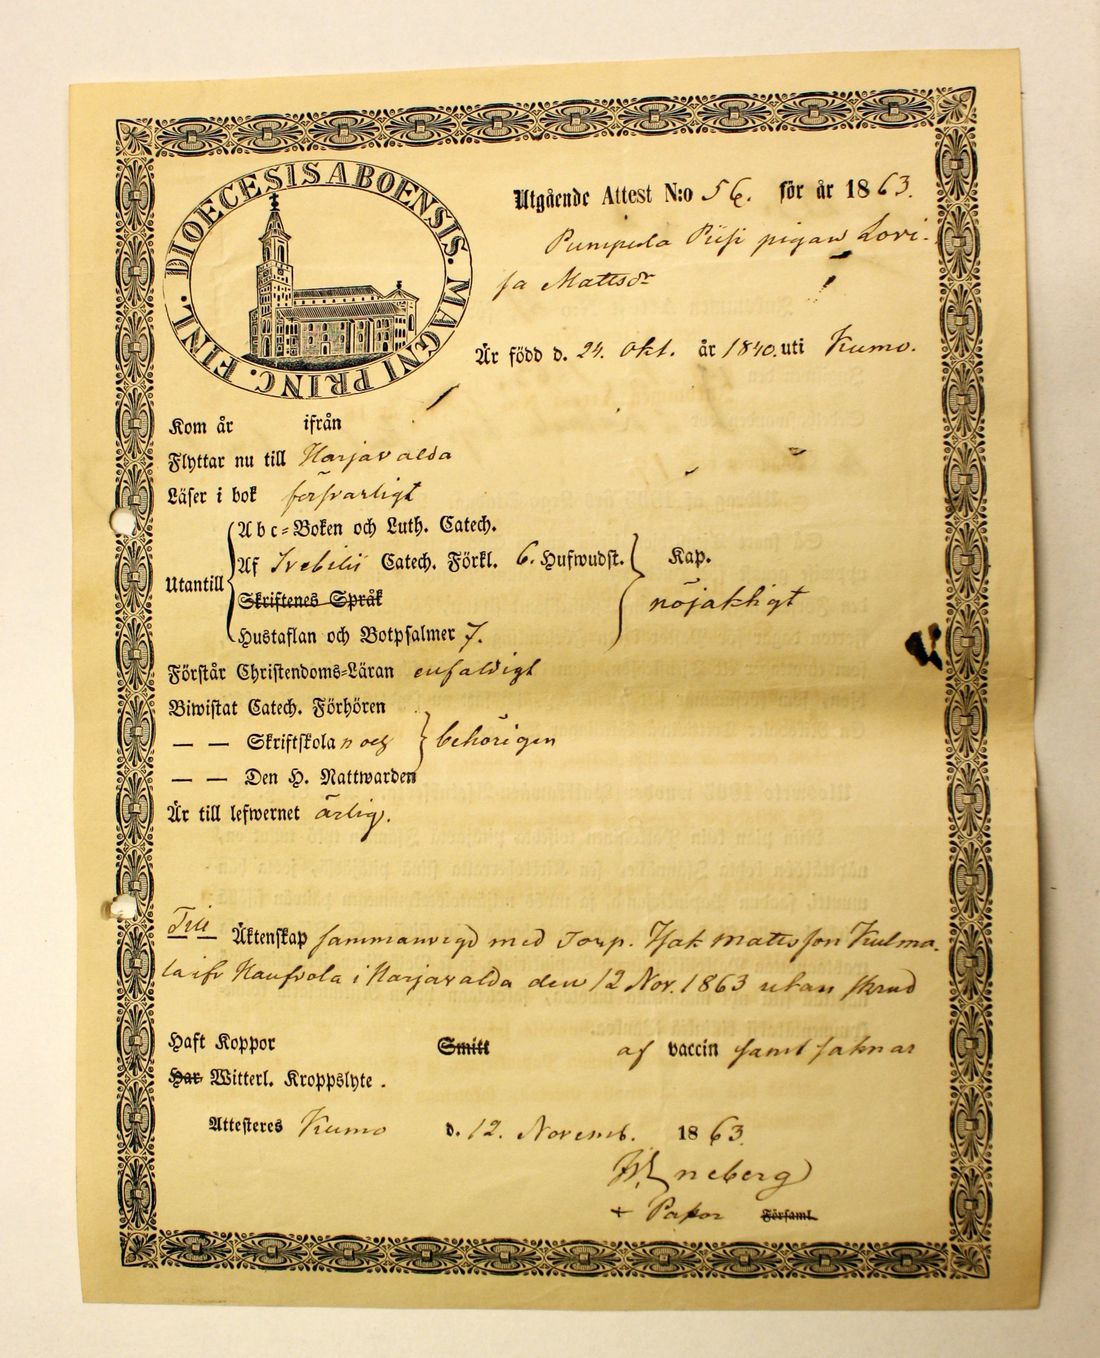 DIOECESIS ABOENSIS. MAGNI PRINC. FINL.
Utgående Attest N:o 56. för år 1863.
Pumpula Piisi pigan Lovi-
sa Mattsdr
Är född d. 24. Okt. år 1840. uti Kumo.
Kom år ifrån
Flyttar nu till Harjavalda
Läser i bok försvarligt
Utantill
Abc=Boken och Luth. Catech.
Af Svebilii Catech. Förkl. 6. Hufwudst. Kap.
Skriftenes Språk nöjaktigt
Hustaflan och Botpsalmer 7.
Förstår Christendoms=Läran enfaldigt
Biwistat Catech. Förhören
— — Skriftskola n och behörigen
— — Den H. Nattwarden
Är till lefwernet ärlig.
Till Äktenskap sammanvigd med Torp. Isak Mattsson Kulma-
la ifr i Harjavalda den 12 Nov. 1863 utan skrud
Haft Koppor Smitt af vaccin samt saknar
Har Witterl. Kroppslyte.
Attesteres Kumo d. 12. Novemb. 1863.
neberg
+ Pastor Församl.